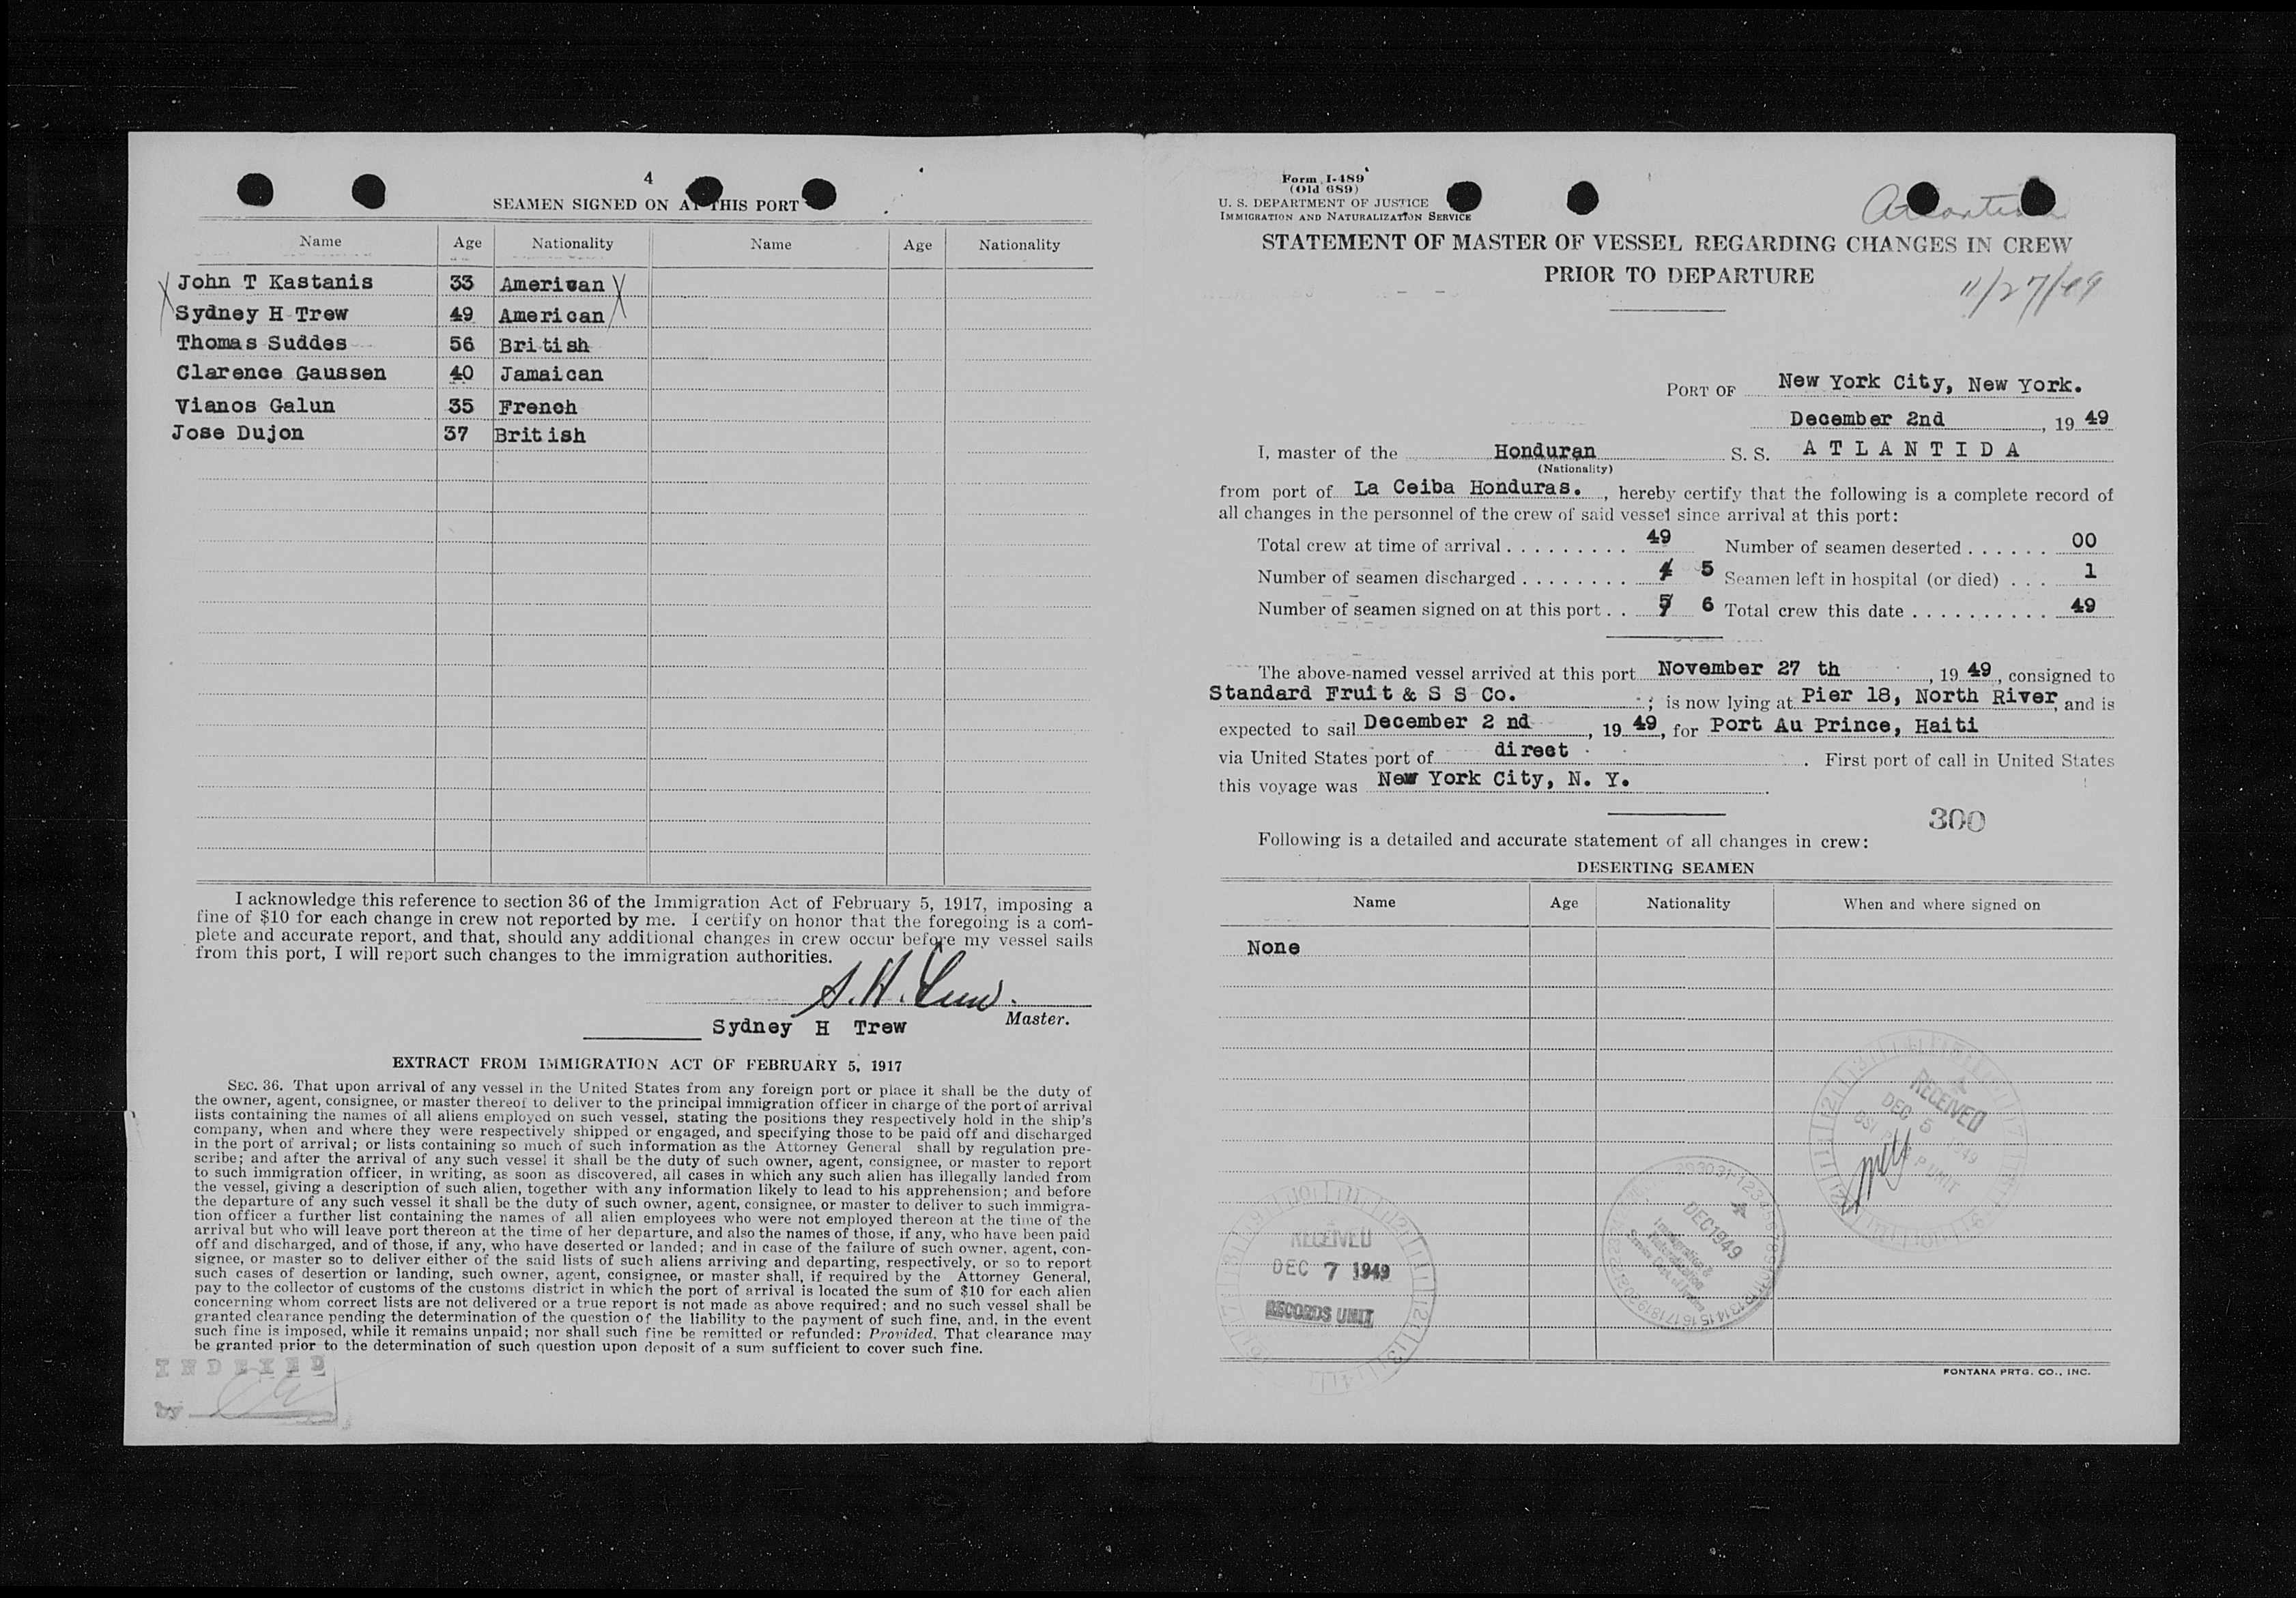 4
SEAMEN SIGNED ON AT THIS PORT
Name Age Nationality Name Age Nationality
John T Kastanis 33 American
Sydney H Trew 49 American
Thomas Suddes 56 British
Clarence Gaussen 40 Jamaican
Vianos Galun 35 French
Jose Dujon 37 British
I acknowledge this reference to section 36 of the Immigration Act of February 5, 1917, imposing a
fine of $10 for each change in crew not reported by me. I certify on honor that the foregoing is a com-
plete and accurate report, and that, should any additional changes in crew occur before my vessel sails
from this port, I will report such changes to the immigration authorities.
S. H. Trew.
Master.
Sydney H Trew
EXTRACT FROM IMMIGRATION ACT OF FEBRUARY 5, 1917
SEC. 36. That upon arrival of any vessel in the United States from any foreign port or place it shall be the duty of
the owner, agent, consignee, or master thereof to deliver to the principal immigration officer in charge of the port of arrival
lists containing the names of all aliens employed on such vessel, stating the positions they respectively hold in the ship's
company, when and where they were respectively shipped or engaged, and specifying those to be paid off and discharged
in the port of arrival; or lists containing so much of such information as the Attorney General shall by regulation pre-
scribe; and after the arrival of any such vessel it shall be the duty of such owner, agent, consignee, or master to report
to such immigration officer, in writing, as soon as discovered, all cases in which any such alien has illegally landed from
the vessel, giving a description of such alien, together with any information likely to lead to his apprehension; and before
the departure of any such vessel it shall be the duty of such owner, agent, consignee, or master to deliver to such immigra-
tion officer a further list containing the names of all alien employees who were not employed thereon at the time of the
arrival but who will leave port thereon at the time of her departure, and also the names of those, if any, who have been paid
off and discharged, and of those, if any, who have deserted or landed; and in case of the failure of such owner, agent, con-
signee, or master so to deliver either of the said lists of such aliens arriving and departing, respectively, or so to report
such cases of desertion or landing, such owner, agent, consignee, or master shall, if required by the Attorney General,
pay to the collector of customs of the customs district in which the port of arrival is located the sum of $10 for each alien
concerning whom correct lists are not delivered or a true report is not made as above required; and no such vessel shall be
granted clearance pending the determination of the question of the liability to the payment of such fine, and, in the event
such fine is imposed, while it remains unpaid; nor shall such fine be remitted or refunded: Provided, That clearance may
be granted prior to the determination of such question upon deposit of a sum sufficient to cover such fine.
INDEXED
by
Form I-489
(Old 689)
U. S. DEPARTMENT OF JUSTICE
IMMIGRATION AND NATURALIZATION SERVICE
Atlantida
STATEMENT OF MASTER OF VESSEL REGARDING CHANGES IN CREW
PRIOR TO DEPARTURE
11/27/49
PORT OF New York City, New York.
December 2nd, 19 49
I, master of the Honduran S. S. ATLANTIDA
(Nationality)
from port of La Ceiba Honduras., hereby certify that the following is a complete record of
all changes in the personnel of the crew of said vessel since arrival at this port:
Total crew at time of arrival 49 Number of seamen deserted 00
Number of seamen discharged 4 5 Seamen left in hospital (or died) 1
Number of seamen signed on at this port 5 6 Total crew this date 49
The above-named vessel arrived at this port November 27 th, 19 49, consigned to
Standard Fruit & S S Co. ; is now lying at Pier 18, North River, and is
expected to sail December 2 nd, 19 49, for Port Au Prince, Haiti
via United States port of direct. First port of call in United States
this voyage was New York City, N. Y.
300
Following is a detailed and accurate statement of all changes in crew:
DESERTING SEAMEN
Name Age Nationality When and where signed on
None
RECEIVED
DEC 5 1949
DEC 1949
Immigration &
Naturalization
Service
RECEIVED
DEC 7 1949
RECORDS UNIT
FONTANA PRTG. CO., INC.